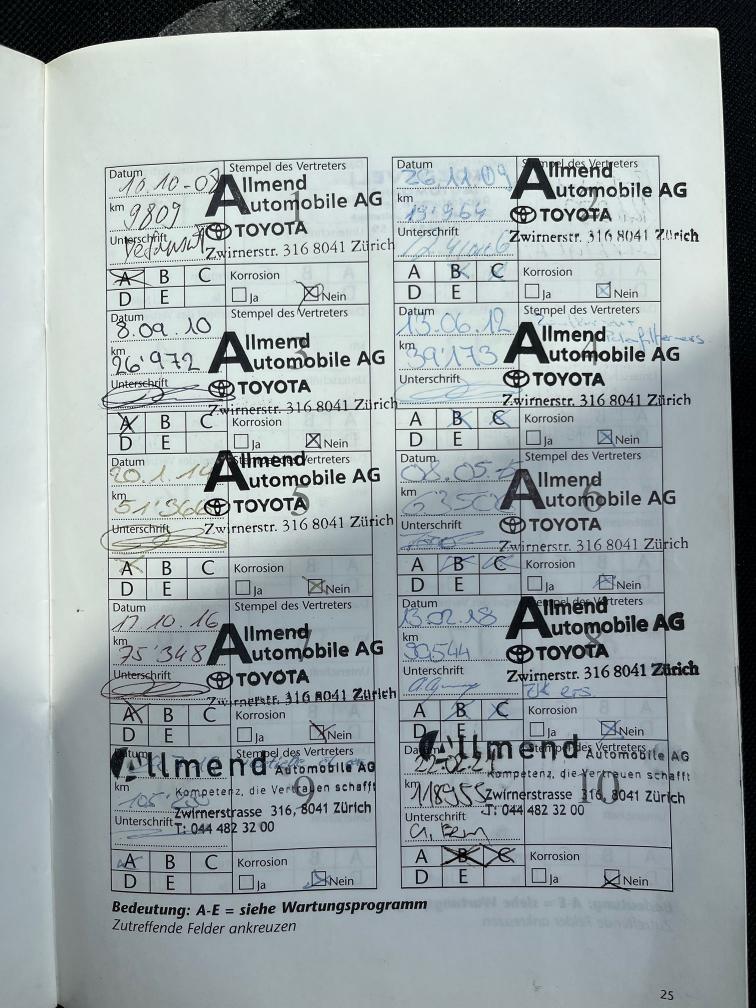 Datum 16.10-02
Stempel des Vertreters
Allmend
Automobile AG
km 9809
1
TOYOTA
Unterschrift
Zwirnerstr. 316 8041 Zürich
A B C
Korrosion
D E
Ja Nein
Datum 26.11.09
Stempel des Vertreters
Allmend
Automobile AG
km 19'964
2
TOYOTA
Unterschrift
Zwirnerstr. 316 8041 Zürich
A B C
Korrosion
D E
Ja Nein
Datum
8.09.10
Stempel des Vertreters
Allmend
Automobile AG
km 26'972
3
TOYOTA
Unterschrift
Zwirnerstr. 316 8041 Zürich
A B C
Korrosion
D E
Ja Nein
Datum
13.06.12
Allmend
Automobile AG
km 39'173
4
TOYOTA
Unterschrift
Zwirnerstr. 316 8041 Zürich
A B C
Korrosion
D E
Ja Nein
Datum
20.1.14
Stempel des Vertreters
Allmend
Automobile AG
km
5
TOYOTA
Unterschrift
Zwirnerstr. 316 8041 Zürich
A B C
Korrosion
D E
Ja Nein
Datum
08.05
Stempel des Vertreters
Allmend
Automobile AG
km
6
TOYOTA
Unterschrift
Zwirnerstr. 316 8041 Zürich
A B C
Korrosion
D E
Ja Nein
Datum
17.10.16
Stempel des Vertreters
Allmend
Automobile AG
km 75'348
7
TOYOTA
Unterschrift
Zwirnerstr. 316 8041 Zürich
A B C
Korrosion
D E
Ja Nein
Datum
13.02.18
Stempel des Vertreters
Allmend
Automobile AG
km 90544
8
TOYOTA
Unterschrift
Zwirnerstr. 316 8041 Zürich
A B C
Korrosion
D E
Ja Nein
Datum
Stempel des Vertreters
Allmend Automobile AG
km
Kompetenz, die Vertrauen schafft
9
Zwirnerstrasse 316, 8041 Zürich
Unterschrift
T: 044 482 32 00
A B C
Korrosion
D E
Ja Nein
Datum
Stempel des Vertreters
Allmend Automobile AG
Kompetenz, die Vertrauen schafft
km 118955
10
Zwirnerstrasse 316, 8041 Zürich
T: 044 482 32 00
Unterschrift
A B C
Korrosion
D E
Ja Nein
Bedeutung: A-E = siehe Wartungsprogramm
Zutreffende Felder ankreuzen
25